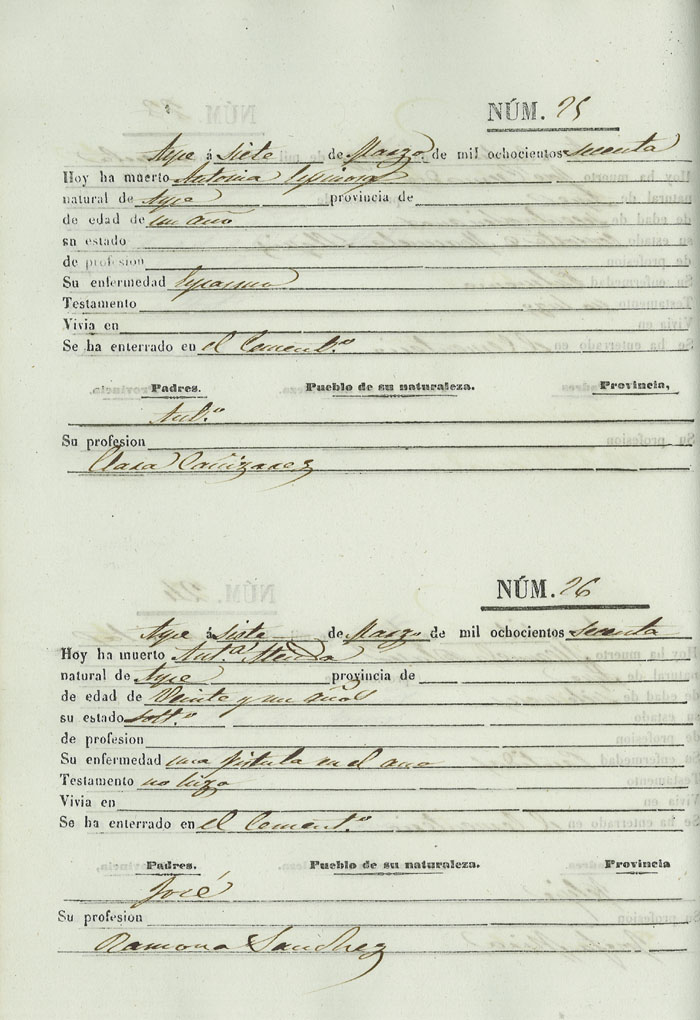 NÚM. 25
Aype á siete de Marzo de mil ochocientos sesenta
Hoy ha muerto Antonia Espinosa
natural de Aype provincia de
de edad de un año
su estado
de profesion
Su enfermedad Espasmo
Testamento
Vivia en
Se ha enterrado en el Cement.º
Padres. Pueblo de su naturaleza. Provincia,
Ant.º
Su profesion
Clara Cañizarez
NÚM. 26
Aype á siete de Marzo de mil ochocientos sesenta
Hoy ha muerto Ant.ª
natural de Aype provincia de
de edad de Veinte y un años
su estado solt.ª
de profesion
Su enfermedad una fistula en el ano
Testamento no hizo
Vivia en
Se ha enterrado en el Cement.º
Padres. Pueblo de su naturaleza. Provincia
José
Su profesion
Ramona Sanchez